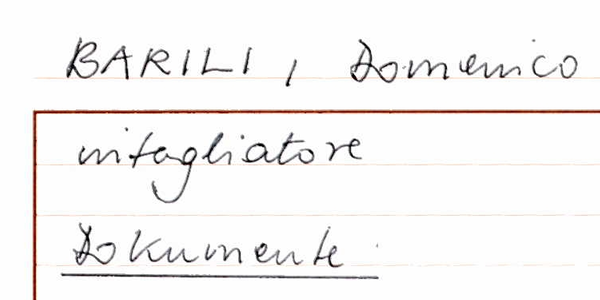 BARILI, Domenico
intagliatore
Dokumente